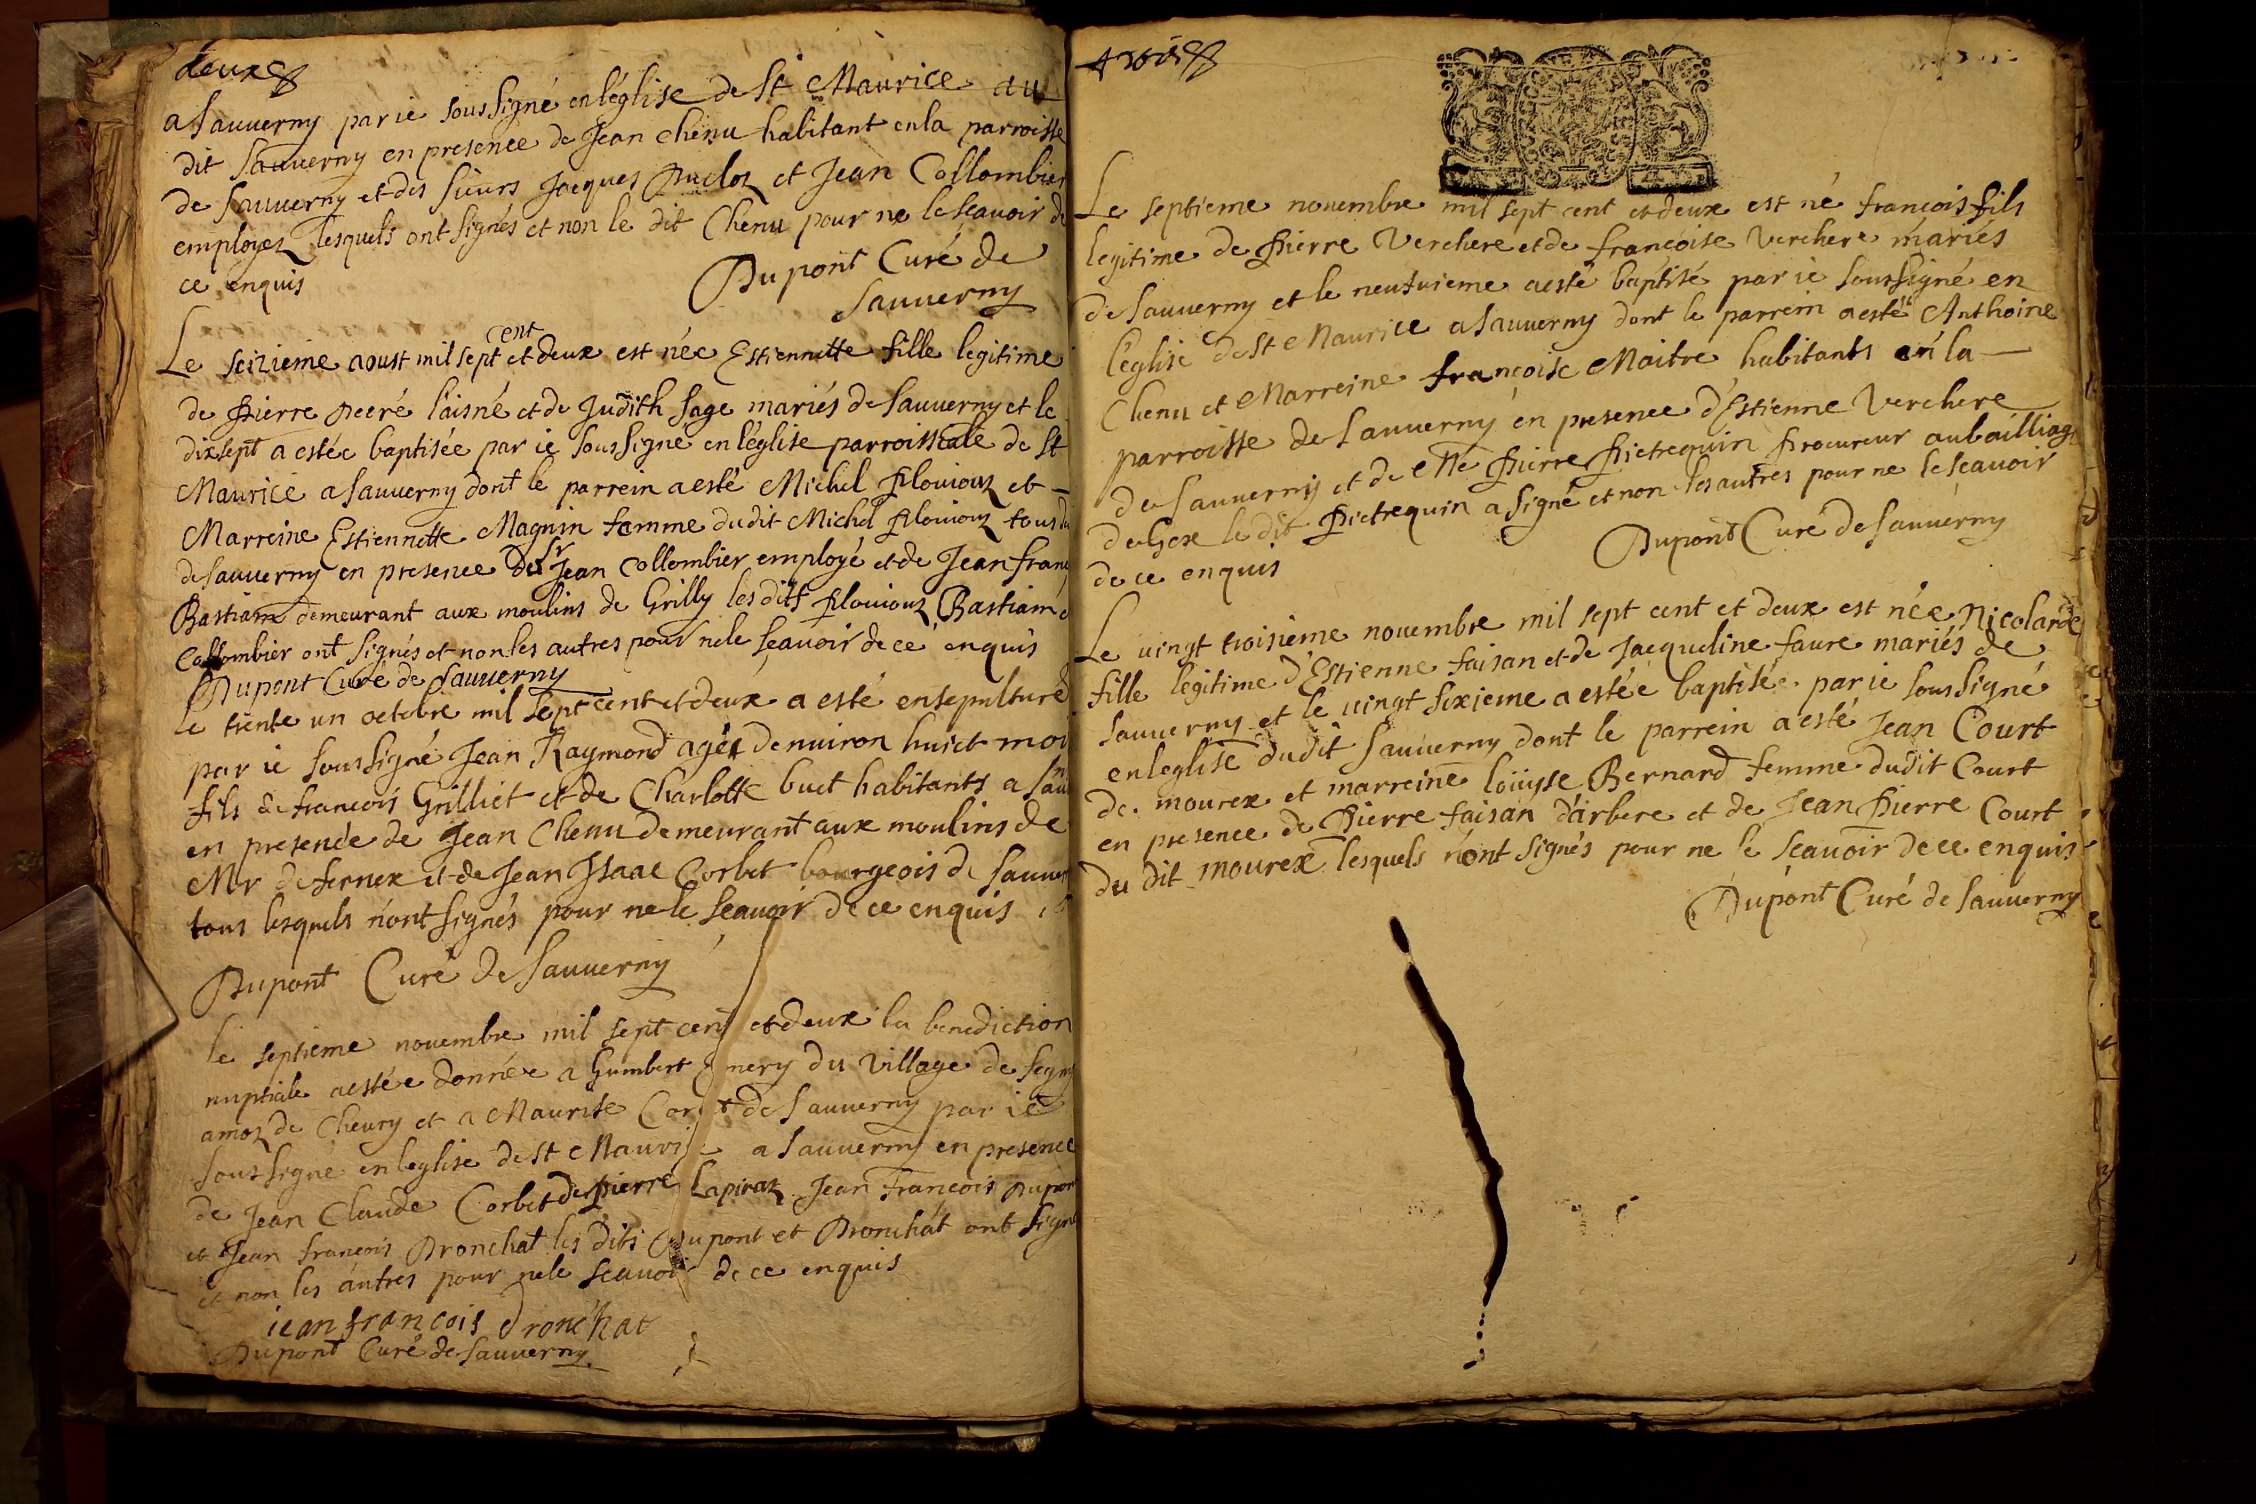 deux
a Sauverny par ie soussigné en l'église de St Maurice au
dit Sauverny en presence de Jean Chenu habitant en la parroisse
de Sauverny et des sieurs Jacques Ducloz et Jean Collombier
employez lesquels ont signés et non le dit Chenu pour ne le scavoir de
ce enquis
Dupont Curé de
Sauverny
cent
Le seizieme aoust mil sept et deux est née Estiennette fille legitime
de Pierre l'aisné et de Judith Sage mariés de Sauverny et le
dixsept a estée baptisée par ie soussigné en l'église parroissiale de St
Maurice a Sauverny dont le parrein a esté Michel et
Marreine Estiennette Magnin femme du dit Michel tous
de Sauverny en presence de Sr Jean Collombier employé et de Jean
Bastian demeurant aux moulins de Grilly les dits Bastian
Collombier ont signés et non les autres pour ne le scavoir de ce enquis
Dupont Curé de Sauverny
le trente un octobre mil sept cent et deux a esté ensepulturé
par ie soussigné Jean Raymond agée denuiron huict moi
fils de francois Grilliet et de Charlotte buet habitants a
en presence de Jean Chenu demeurant aux moulins de
Mr de fernex et de Jean Isaac Corbet bourgeois de Sauver
tous lesquels n'ont signés pour ne le scavoir de ce enquis
Dupont Curé de Sauverny
le septieme nouembre mil sept cent et deux la benediction
nuptiale a estée donnée a Humbert Emery du village de Segny
de Cheury et a Maurise de Sauverny par ie
soussigné en leglise de St Maurice a Sauverny en presence
de Jean Claude Corbet de Pierre Lapiraz Jean François Dupon
et Jean françois Dronchat les dits Dupont et Dronchat ont signé
et non les autres pour ne le scauoir de ce enquis
iean francois dronchat
Dupont Curé de Sauverny
trois
Le septieme nouembre mil sept cent et deux est né francois fils
legitime de Pierre Verchere et de françoise Verchere mariés
de Sauverny et le neufuieme a esté baptisé par ie soussigné en
l'église de St Maurice a Sauverny dont le parrein a esté Anthoine
Chenu et Marreine françoise Maitre habitants en la
parroisse de Sauverny en presence d'Estienne Verchere
de Sauverny et de Me Pierre Pietrequin Procureur au bailliage
de Gex le dit Pietrequin a signé et non les autres pour ne le scauoir
de ce enquis
Dupont Curé de Sauverny
Le uingt troisieme nouembre mil sept cent et deux est née Nicolarde
fille legitime d'Estienne faisan et de Jacqueline faure mariés de
Sauverny et le uingt sixieme a estée baptisée par ie soussigné
en leglise du dit Sauverny dont le parrein a esté Jean Court
de mourex et marreine loüyse Bernard femme du dit Court
en presence de Pierre faisan d'arbere et de Jean Pierre Court
du dit mourex lesquels n'ont signés pour ne le scauoir de ce enquis
Dupont Curé de Sauverny